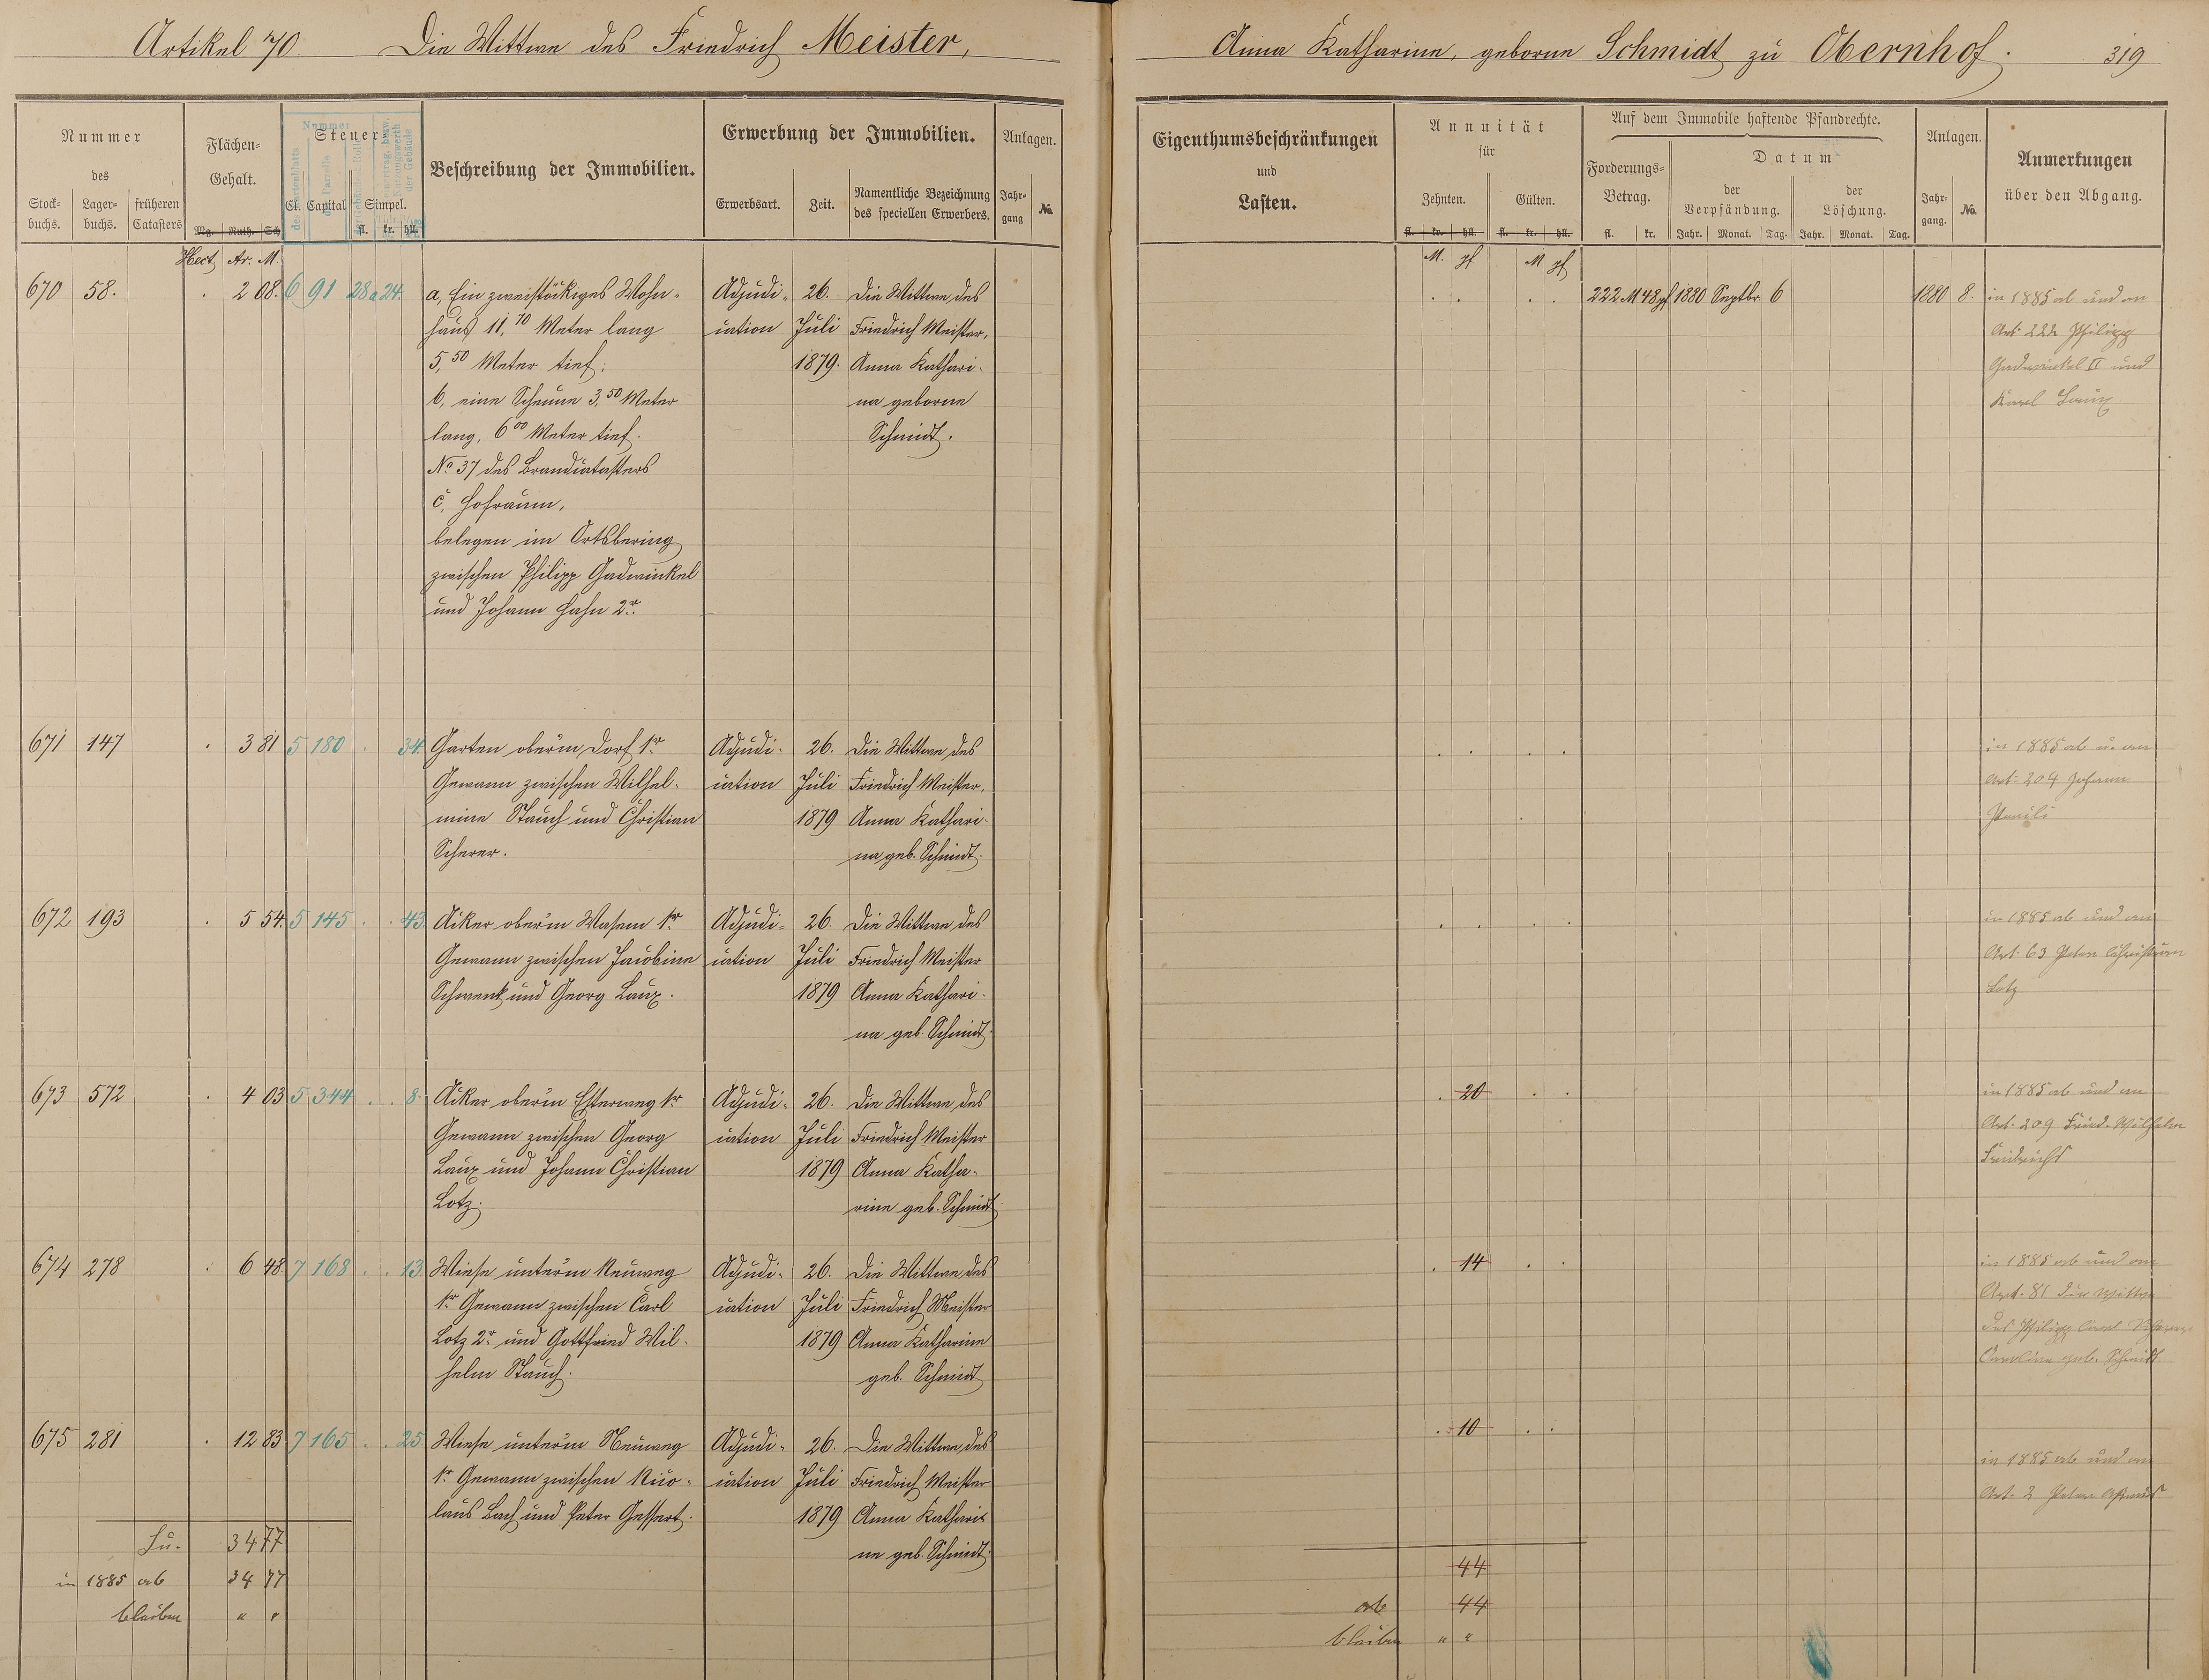 Artikel 70. Die Wittwe des Friedrich Meister,
Anna Katharine, geborne Schmidt zu Obernhof. 319
Nummer
des
Stock-
buchs.
Lager-
buchs.
früheren
Catasters
Flächen-
Gehalt.
Mg. Ruth. Sch.
Steuer
Nummer
Cl. Capital Simpel.
fl. kr. hll.
Beschreibung der Immobilien.
Erwerbung der Immobilien.
Erwerbsart. Zeit.
Namentliche Bezeichnung
des speciellen Erwerbers.
Anlagen.
Jahr-
gang
No.
Eigenthumsbeschränkungen
und
Lasten.
Annuität
für
Zehnten. Gülten.
fl. kr. hll. fl. kr. hll.
Auf dem Immobile haftende Pfandrechte.
Forderungs-
Betrag.
fl. kr.
Datum
der
Verpfändung.
der
Löschung.
Jahr. Monat. Tag. Jahr. Monat. Tag.
Anlagen.
Jahr-
gang.
No.
Anmerkungen
über den Abgang.
Hect. Ar. M.
M. pf M pf
670 58. 2 08. 6 91 28a 24.
a, Ein zweistöckiges Wohn-
haus 11,70 Meter lang
5,50 Meter tief;
b, eine Scheune 3,50 Meter
lang, 6 00 Meter tief.
No 37 des Brandcatasters
c, Hofraum,
belegen im Ortsbering
zwischen Philipp Gadwinkel
und Johann Hahn 2r.
Adjudi-
cation
26.
Juli
1879.
Die Wittwe des
Friedrich Meister,
Anna Kathari-
na geborne
Schmidt.
222 M 48 pf 1880 Septbr 6 1880 8.
in 1885 ab und an
Art. 222 Philipp
Gadwinkel II und
Karl Laux
671 147 3 81 5 180 34.
Garten oberm Dorf 1r
Gewann zwischen Wilhel-
mine Stauch und Christian
Scherer.
Adjudi-
cation
26.
Juli
1879
Die Wittwe des
Friedrich Meister,
Anna Kathari-
na geb. Schmidt.
in 1885 ab u. an
Art. 204 Johann
Pauli
672 193 5 54. 5 145 43.
Acker oberm Wasem 1r
Gewann zwischen Jacobine
Schwenk und Georg Laux.
Adjudi-
cation
26.
Juli
1879
Die Wittwe des
Friedrich Meister
Anna Kathari-
na geb. Schmidt.
in 1885 ab und an
Art. 63 Peter Christian
Lotz
673 572 4 03 5 344 8.
Acker oberm Esterweg 1r
Gewann zwischen Georg
Laux und Johann Christian
Lotz.
Adjudi-
cation
26.
Juli
1879
Die Wittwe des
Friedrich Meister
Anna Katha-
rine geb. Schmidt.
20
in 1885 ab und an
Art. 209 Fried. Wilhelm
Friedrichs
674 278 6 48. 7 168 13.
Wiese unterm Neuweg
1r Gewann zwischen Carl
Lotz 2r und Gottfried Wil-
helm Stauch.
Adjudi-
cation
26.
Juli
1879
Die Wittwe des
Friedrich Meister
Anna Katharine
geb. Schmidt
14
in 1885 ab und an
Art. 81 die Wittwe
des Philipp Carl
Caroline geb. Schmidt
675 281 12 83 7 165 25.
Wiese unterm Neuweg
1r Gewann zwischen Nico-
laus Bach und Peter Gessert.
Adjudi-
cation
26.
Juli
1879
Die Wittwe des
Friedrich Meister
Anna Kathari-
ne geb. Schmidt.
10
in 1885 ab und an
Art. 2 Peter
Su. 34 77
in 1885 ab 34 77
bleiben " "
44
ab 44
bleiben " "